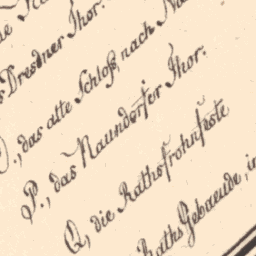 Dresdner Thor.
O., das alte Schloß nach
P., das Naundorfer Thor.
Q, die Raths frohnfeste
Raths Gebaeude,